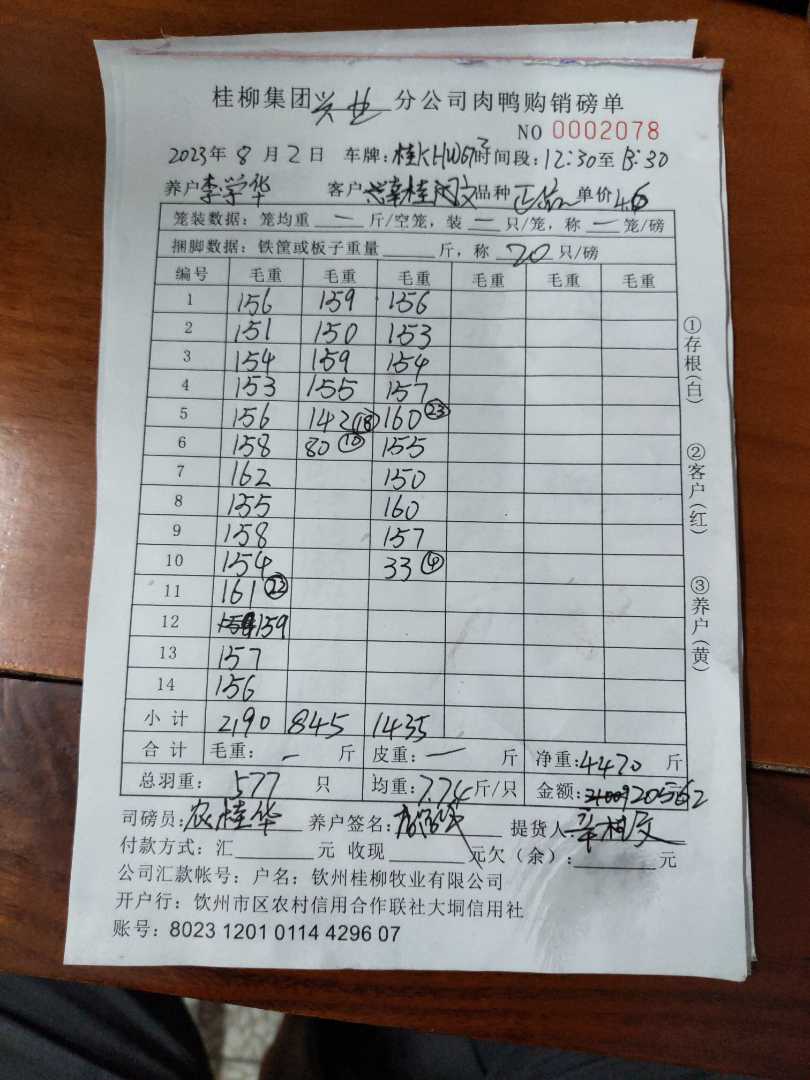 桂柳集团兴业分公司肉鸭购销磅单
NO 0002078
2023年8月2日 车牌:桂KHW67 时间段:12:30至13:30
养户李学华 客户 桂 文 品种正品 单价4.6
笼装数据:笼均重 一 斤/空笼,装 一 只/笼,称 一 笼/磅
捆脚数据:铁筐或板子重量 斤,称 20 只/磅
编号 毛重 毛重 毛重 毛重 毛重 毛重
1 156 159 156
2 151 150 153
3 154 159 154
4 153 155 157
5 156 142⑱ 160㉓
6 158 80⑩ 155
7 162 150
8 155 160
9 158 157
10 154 33④
11 161㉒
12 159
13 157
14 156
小计 2190 845 1435
合计 毛重: 一 斤 皮重: 一 斤 净重:4470斤
总羽重: 577 只 均重:7.74斤/只 金额:21009 20562
司磅员:农桂华 养户签名: 提货人: 文
付款方式:汇 元 收现 元欠(余): 元
公司汇款帐号:户名:钦州桂柳牧业有限公司
开户行:钦州市区农村信用合作联社大垌信用社
账号:8023 1201 0114 4296 07
①存根(白)
②客户(红)
③养户(黄)